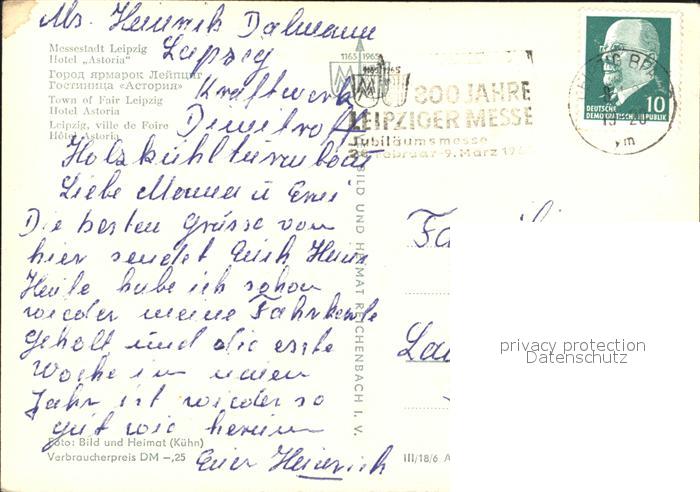 Abs. Heinrich Dalmann
Leipzig
Kraftwerk
Dimitroff
Holzkühlturmbau
Messestadt Leipzig
Hotel „Astoria“
Город ярмарок Лейпциг
Гостиница «Астория»
Town of Fair Leipzig
Hotel Astoria
Leipzig, ville de Foire
Hôtel Astoria
Liebe Mama u
Die besten Grüsse von
hier sendet Euch Heinr
Heute habe ich schon
wieder meine Fahrkarte
geholt und die erste
Woche im neuen
Jahr ist wieder so
gut wie herum
Euer Heinrich
Foto: Bild und Heimat (Kühn)
Verbraucherpreis DM –,25
BILD UND HEIMAT REICHENBACH I. V.
III/18/6 A
1165 1965
800 JAHRE
LEIPZIGER MESSE
Jubiläumsmesse
Februar-9. März 196
LEIPZIG BP
DEUTSCHE
DEMOKRATISCHE REPUBLIK
10
Fa
La
privacy protection
Datenschutz